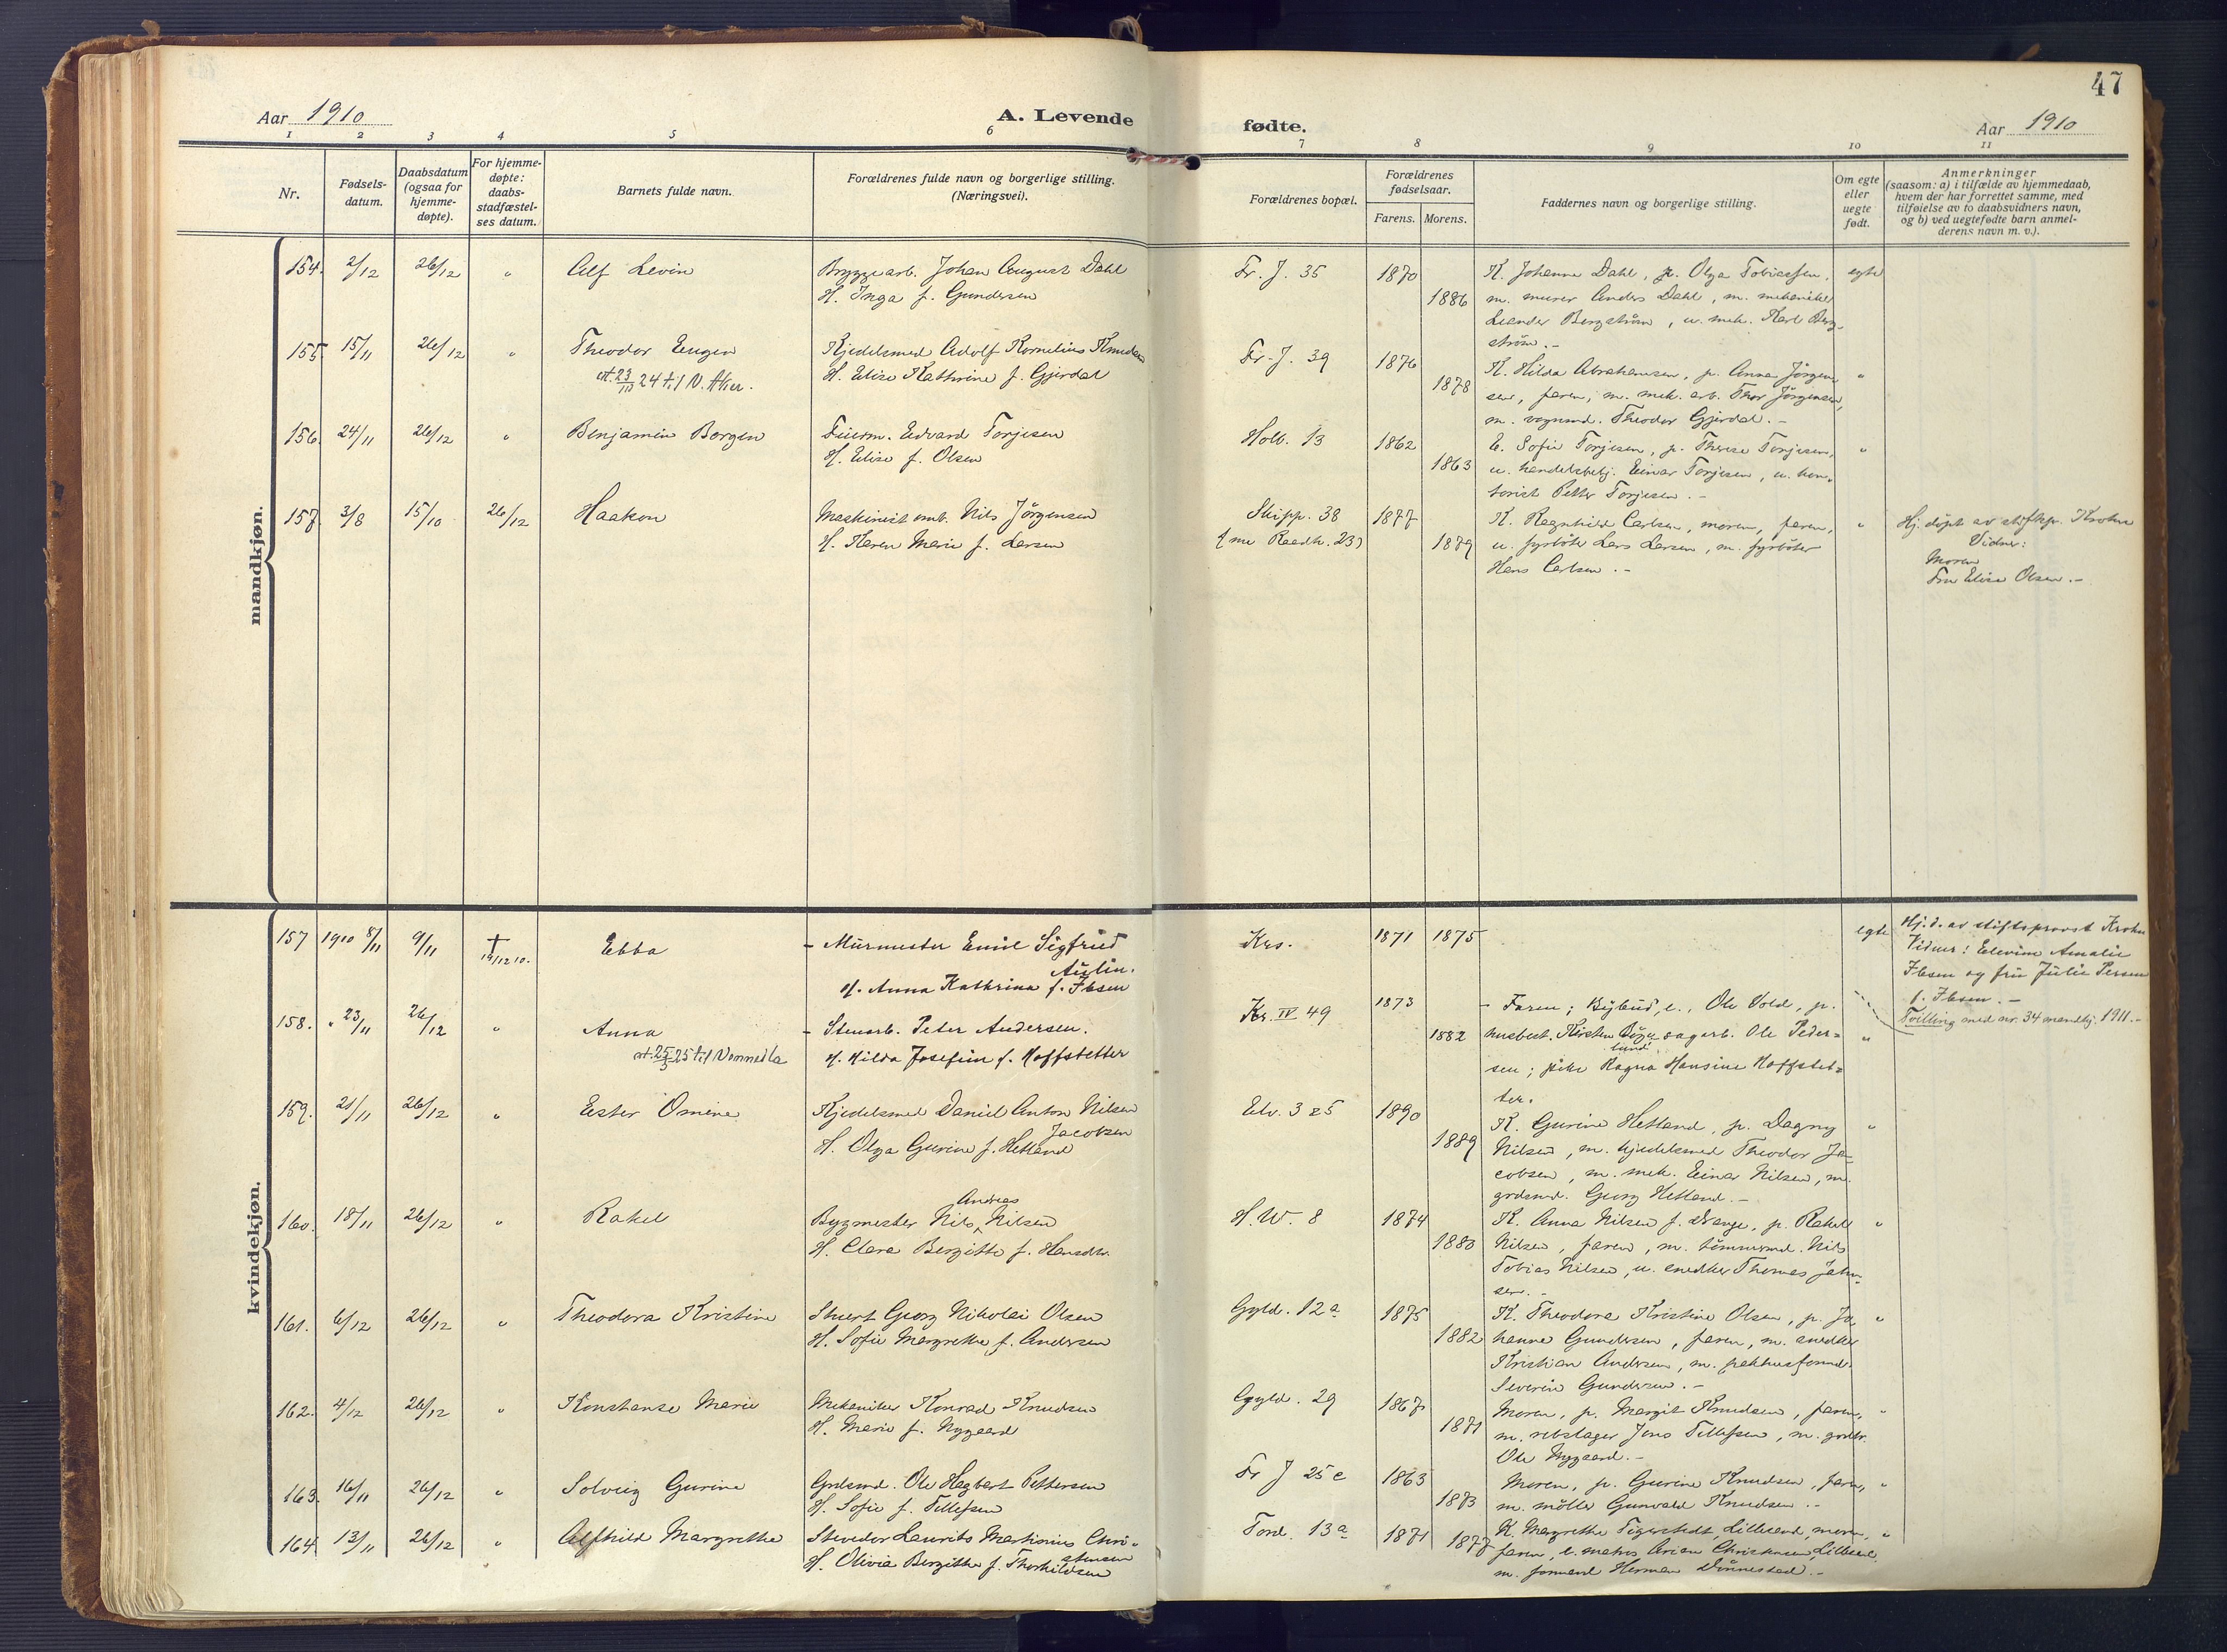 47
Aar 1910
A. Levende
fødte.
Aar 1910
1 2 3 4 5 6 7 8 9 10 11
Nr.
Fødsels-
datum.
Daabsdatum
(ogsaa for
hjemme-
døpte).
For hjemme-
døpte:
daabs-
stadfæstel-
ses datum.
Barnets fulde navn.
Forældrenes fulde navn og borgerlige stilling.
(Næringsvei).
Forældrenes bopæl.
Forældrenes
fødselsaar.
Farens. Morens.
Faddernes navn og borgerlige stilling.
Om egte
eller
uegte
født.
Anmerkninger
(saasom: a) i tilfælde av hjemmedaab,
hvem der har forrettet samme, med
tilføielse av to daabsvidners navn,
og b) ved uegtefødte barn anmel-
derens navn m. v.).
mandkjøn.
154. 2/12 26/12 " Alf Levin
Bryggearb. Johan August Dahl
H. Inga f. Gundersen
Fr. J. 35 1870
1886
K. Johanne Dahl, p. Olga Tobiassen,
m. murer Anders Dahl, m. mekaniker
Leander Bergström, u. mek. Karl Berg-
ström.-
egte
155 15/11 26/12 " Theodor Eugen
att. 23/10 24 til V. Aker.
Kjedelsmed Adolf Kornelius Knudsen
H. Elise Kathrine f. Gjerdal
Fr. J. 39 1876
1878
K. Hilda Abrahamsen, p. Anna Jörgen
sen, faren, m. mek. arb. Thor Jörgensen,
m. vognmd. Theodor Gjerdal.-
"
156. 24/11 26/12 " Benjamin Borgen
Fuerm. Edvard Torjesen
H. Elise f. Olsen
Holb. 13 1862
1863
E. Sofie Torjesen, p. Therese Torjesen,
u. handelsbetj. Einar Torjesen, u. kon-
torist Petter Torjesen.-
"
157 3/8 15/10 26/12 Haakon
Maskinist emb. Nils Jörgensen
H. Karen Marie f. Larsen
Skipp. 38
(nu Raadh. 23)
1877
1879
K. Ragnhild Carlsen, moren, faren,
u. fyrböter Lars Larsen, m. fyrböter
Hans Carlsen.-
"
Hj. döpt av stiftsp. Krohn
Vidner:
Moren
Fru Elise Olsen.-
kvindekjøn.
157 1910 8/11 9/11 † 19/12 10. Ebba
- Murmester Emil Sigfried
Aulin.
H. Anna Kathrina f. Ibsen
Krs. 1871 1875 egte
Hj. d. av stiftsprovst Krohn
Vidner: Elevine Amalie
Ibsen og fru Julie Persen
f. Ibsen.-
158. " 23/11 26/12 " Anna
att. 25/3 25 til Vennesla
- Stenarb. Peter Andersen.
H. Hilda Josefine f. Hoffstetter
Kr. IV 49 1873
1882
- Faren; Bybud, e., Ole Vold, p.
husbest. Kirsten Böge-
lund sagarb. Ole Peder=
sen; pike Ragna Hansine Hoffstet=
ter.
"
Tvilling med nr. 34 mandkj. 1911.-
159. 21/11 26/12 " Ester Omine
Kjedelsmed Daniel Anton Nilsen
Jacobsen
H. Olga Gurine f. Hetland
Elv. 3 1890
1889
K. Gurine Hetland, p. Dagny
Nilsen, m. kjedelsmed Theodor Ja-
cobsen, m. mek. Einar Nilsen, m.
grdsmd. Georg Hetland.-
"
160. 18/11 26/12 " Rakel
Andreas
Bygmester Nils Nilsen
H. Clara Bergitte f.
H. W. 8 1874
1883
K. Anna Nilsen f. Drange, p. Rakel
Nilsen, faren, m. tömmermd. Nils
Tobias Nilsen, u. snedker Thomas Jahn-
sen.-
"
161. 6/12 26/12 " Theodora Kristine
Stuert Georg Nikolai Olsen
H. Sofie Margrethe f. Andersen
Gyld. 12a 1875
1882
K. Theodora Kristine Olsen, p. Jo-
hanne Gundersen, faren, m. snedker
Kristian Andersen, m. pakhusformd.
Severin Gundersen.-
"
162. 4/12 26/12 " Konstanse Marie
Mekaniker Konrad Knudsen
H. Marie f. Nygaard
Gyld. 29 1867
1871
Moren, p. Margit Knudsen, faren,
m. rebslager Jens Tellefsen, m. grdbr.
Ole Nygaard.-
"
163. 16/11 26/12 " Solveig Gurine
Grdsmd. Ole Hagbart Pettersen
H. Sofie f. Tellefsen
Fr J 25c 1863
1873
Moren, p. Gurine Knudsen, faren,
m. möller Gunvald Knudsen.-
"
164 13/11 26/12 " Alfhild Margrethe
Stevedor Laurits Martinius Chri-
stensen
H. Olivia Bergitte f. Thorkildsen
Tord. 13a 1871 1877
K. Margrethe Tigerstedt, Lillesand, moren,
faren, e. matros Arian Christensen, Lillesand,
m. formand Herman Dönnestad.-
"